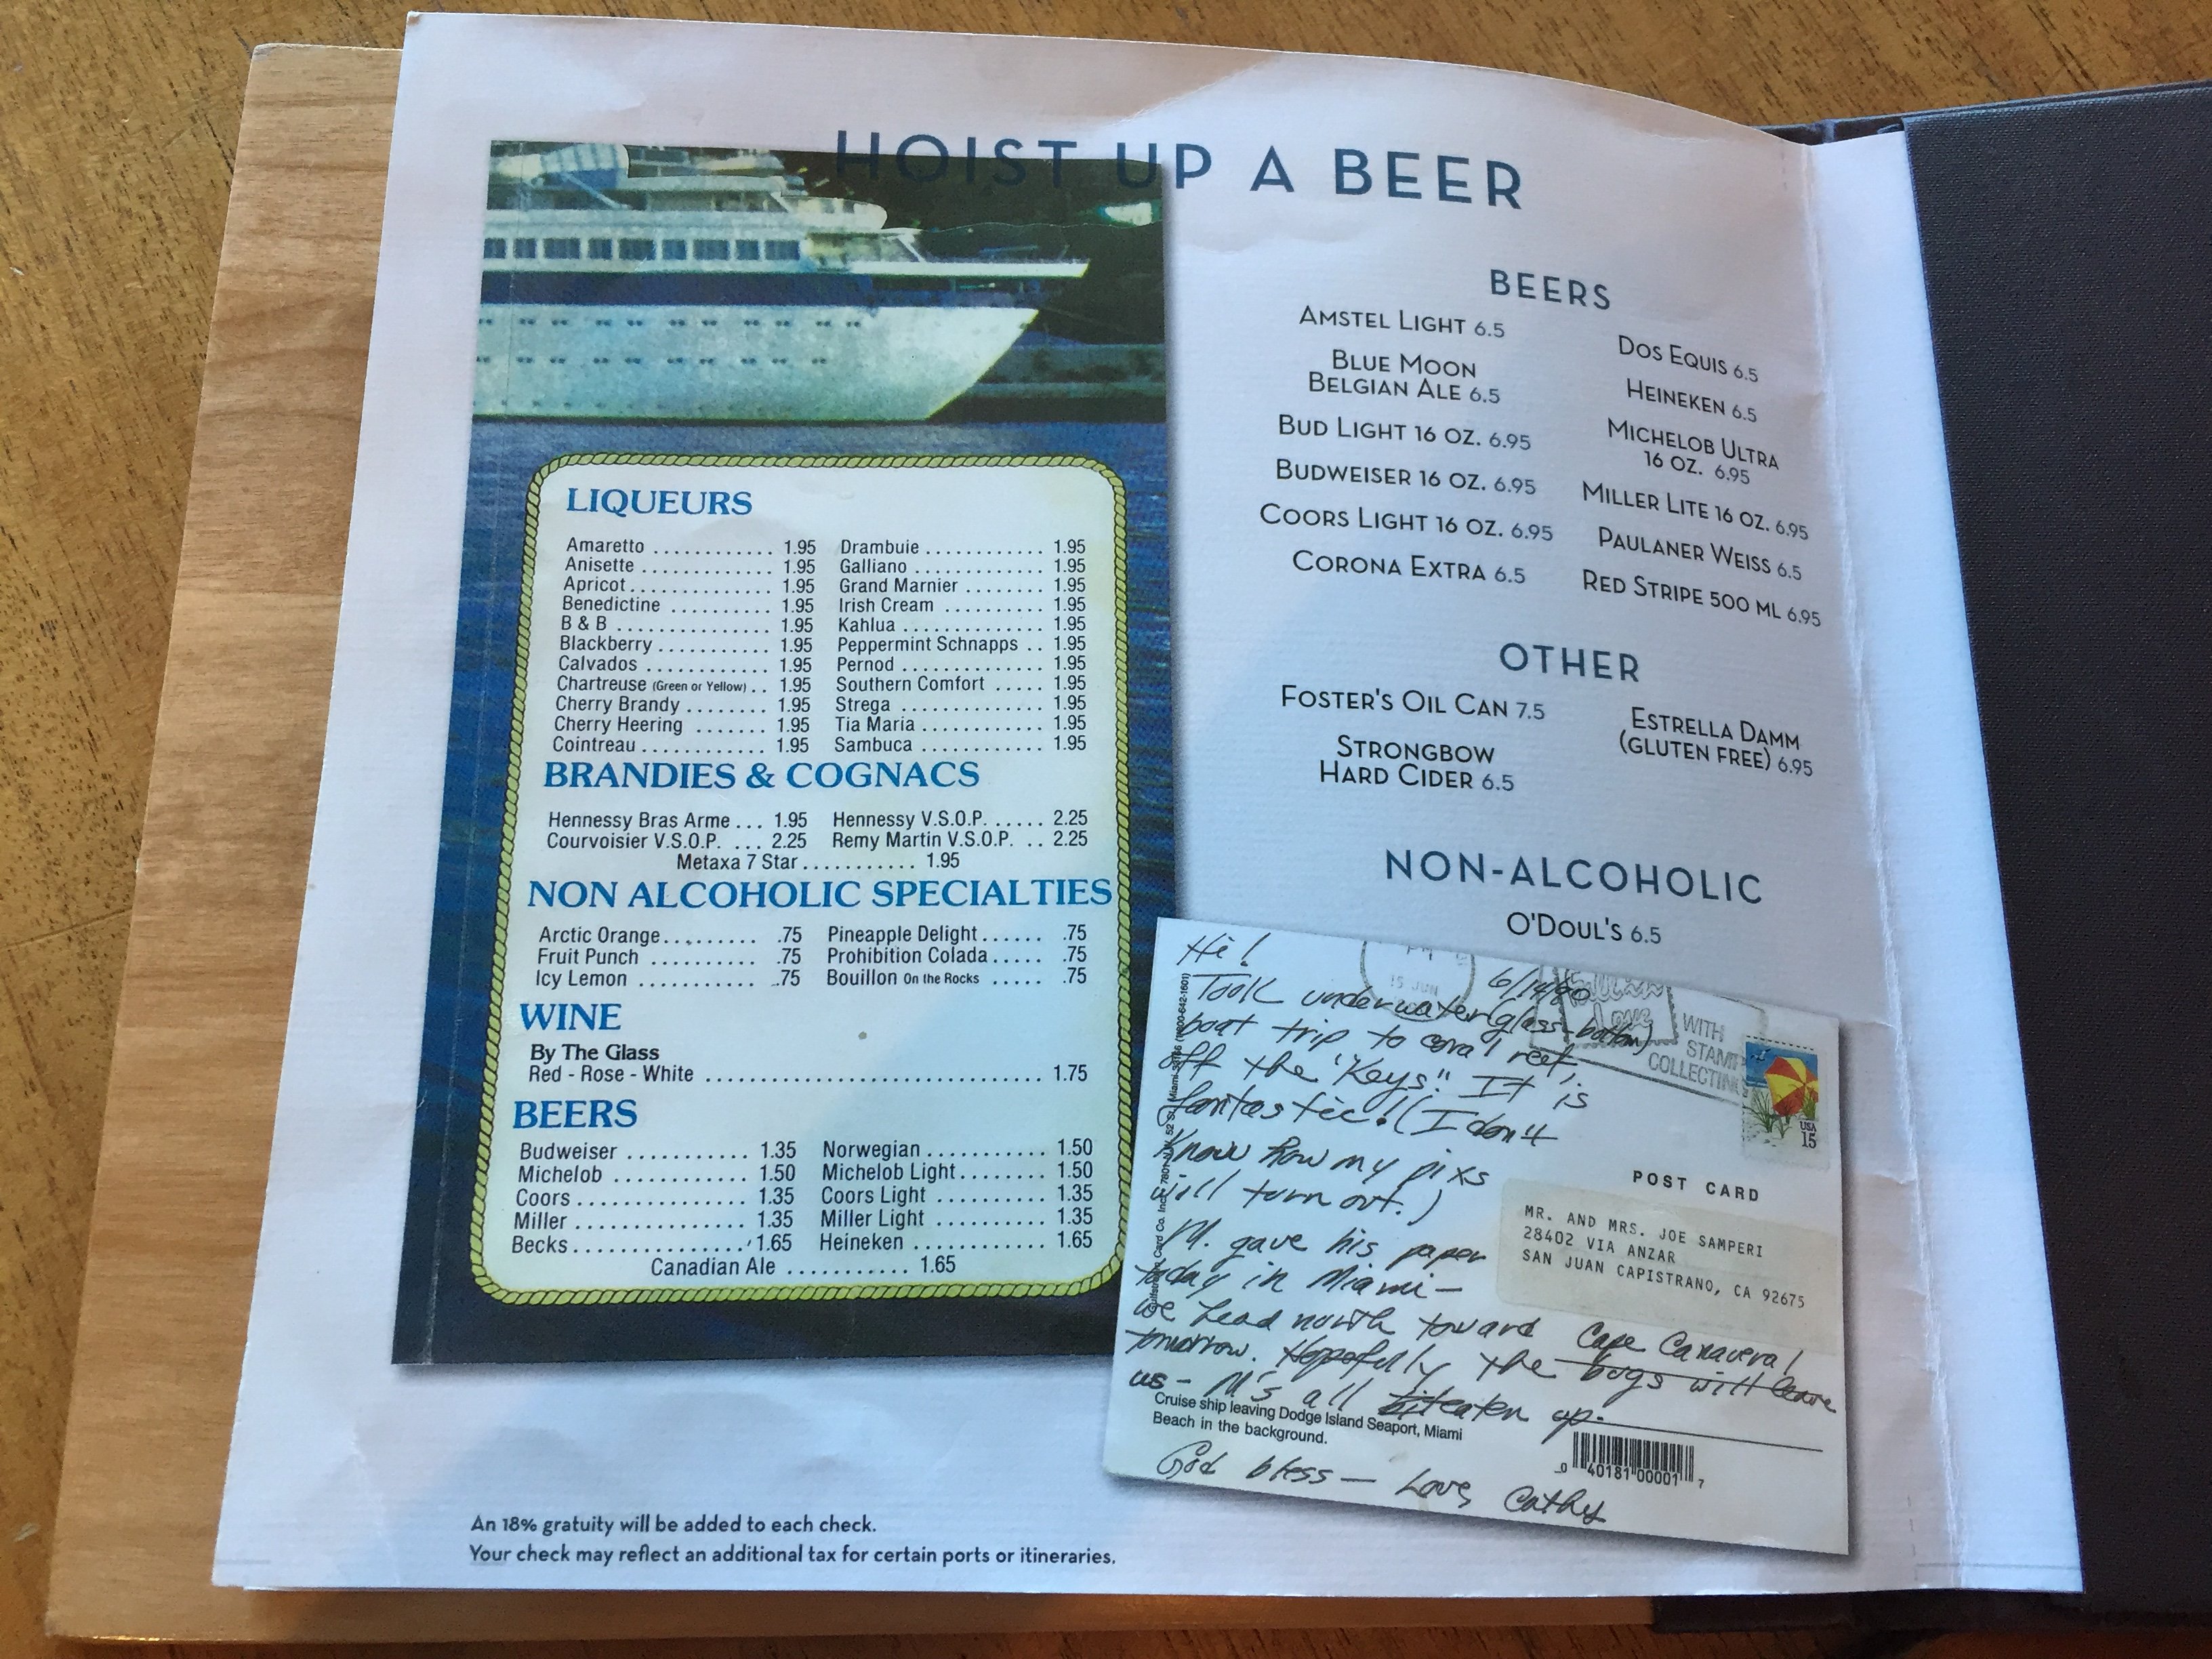 HOIST UP A BEER
LIQUEURS
Amaretto ............ 1.95 Drambuie ............ 1.95
Anisette ............ 1.95 Galliano ............. 1.95
Apricot .............. 1.95 Grand Marnier ........ 1.95
Benedictine .......... 1.95 Irish Cream .......... 1.95
B & B ................ 1.95 Kahlua ............... 1.95
Blackberry ........... 1.95 Peppermint Schnapps .. 1.95
Calvados ............ 1.95 Pernod ............... 1.95
Chartreuse (Green or Yellow) .. 1.95 Southern Comfort ..... 1.95
Cherry Brandy ........ 1.95 Strega ............... 1.95
Cherry Heering ....... 1.95 Tia Maria ............ 1.95
Cointreau ............ 1.95 Sambuca ............ 1.95
BRANDIES & COGNACS
Hennessy Bras Arme ... 1.95 Hennessy V.S.O.P. ...... 2.25
Courvoisier V.S.O.P. ... 2.25 Remy Martin V.S.O.P. .. 2.25
Metaxa 7 Star ........... 1.95
NON ALCOHOLIC SPECIALTIES
Arctic Orange ......... .75 Pineapple Delight ...... .75
Fruit Punch .......... .75 Prohibition Colada ..... .75
Icy Lemon ........... .75 Bouillon On the Rocks ..... .75
WINE
By The Glass
Red - Rose - White ................................ 1.75
BEERS
Budweiser ........... 1.35 Norwegian ............ 1.50
Michelob ............ 1.50 Michelob Light ......... 1.50
Coors ................ 1.35 Coors Light ........... 1.35
Miller ................ 1.35 Miller Light ........... 1.35
Becks ................ 1.65 Heineken ............ 1.65
Canadian Ale ........... 1.65
BEERS
AMSTEL LIGHT 6.5
BLUE MOON
BELGIAN ALE 6.5
BUD LIGHT 16 OZ. 6.95
BUDWEISER 16 OZ. 6.95
COORS LIGHT 16 OZ. 6.95
CORONA EXTRA 6.5
DOS EQUIS 6.5
HEINEKEN 6.5
MICHELOB ULTRA
16 OZ. 6.95
MILLER LITE 16 OZ. 6.95
PAULANER WEISS 6.5
RED STRIPE 500 ML 6.95
OTHER
FOSTER'S OIL CAN 7.5
STRONGBOW
HARD CIDER 6.5
ESTRELLA DAMM
(GLUTEN FREE) 6.95
NON-ALCOHOLIC
O'DOUL'S 6.5
Hi!
6/14/90
Took underwater (glass-bottom)
boat trip to coral reef,
off the "Keys." It is
fantastic! (I don't
know how my pixs
will turn out.)
M. gave his paper
today in Miami—
we head north toward Cape Canaveral
tomorrow. Hopefully the bugs will leave
us — M's all biteaten up.
God bless — Love, Cathy
PM
15 JUN
Love
WITH
STAMP
COLLECTING
USA
15
POST CARD
MR. AND MRS. JOE SAMPERI
28402 VIA ANZAR
SAN JUAN CAPISTRANO, CA 92675
Cruise ship leaving Dodge Island Seaport, Miami
Beach in the background.
0 40181 00001 7
An 18% gratuity will be added to each check.
Your check may reflect an additional tax for certain ports or itineraries.